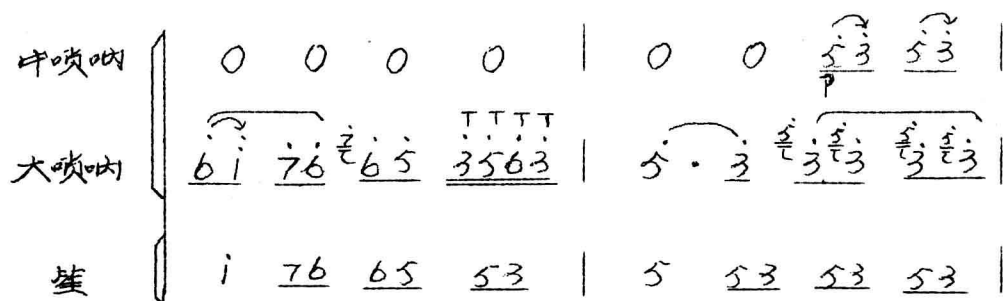 中唢呐 0 0 0 0 | 0 0 5̇3̇ 5̇3̇ |
p
T T T T
大唢呐 6̇i̇ 7̇6̇ 6̇5 3̇5̇6̇3̇ | 5̇ · 3̇ 3̇ 3̇ 3̇ 3̇ |
笙 i 76 65 53 | 5 53 53 53 |